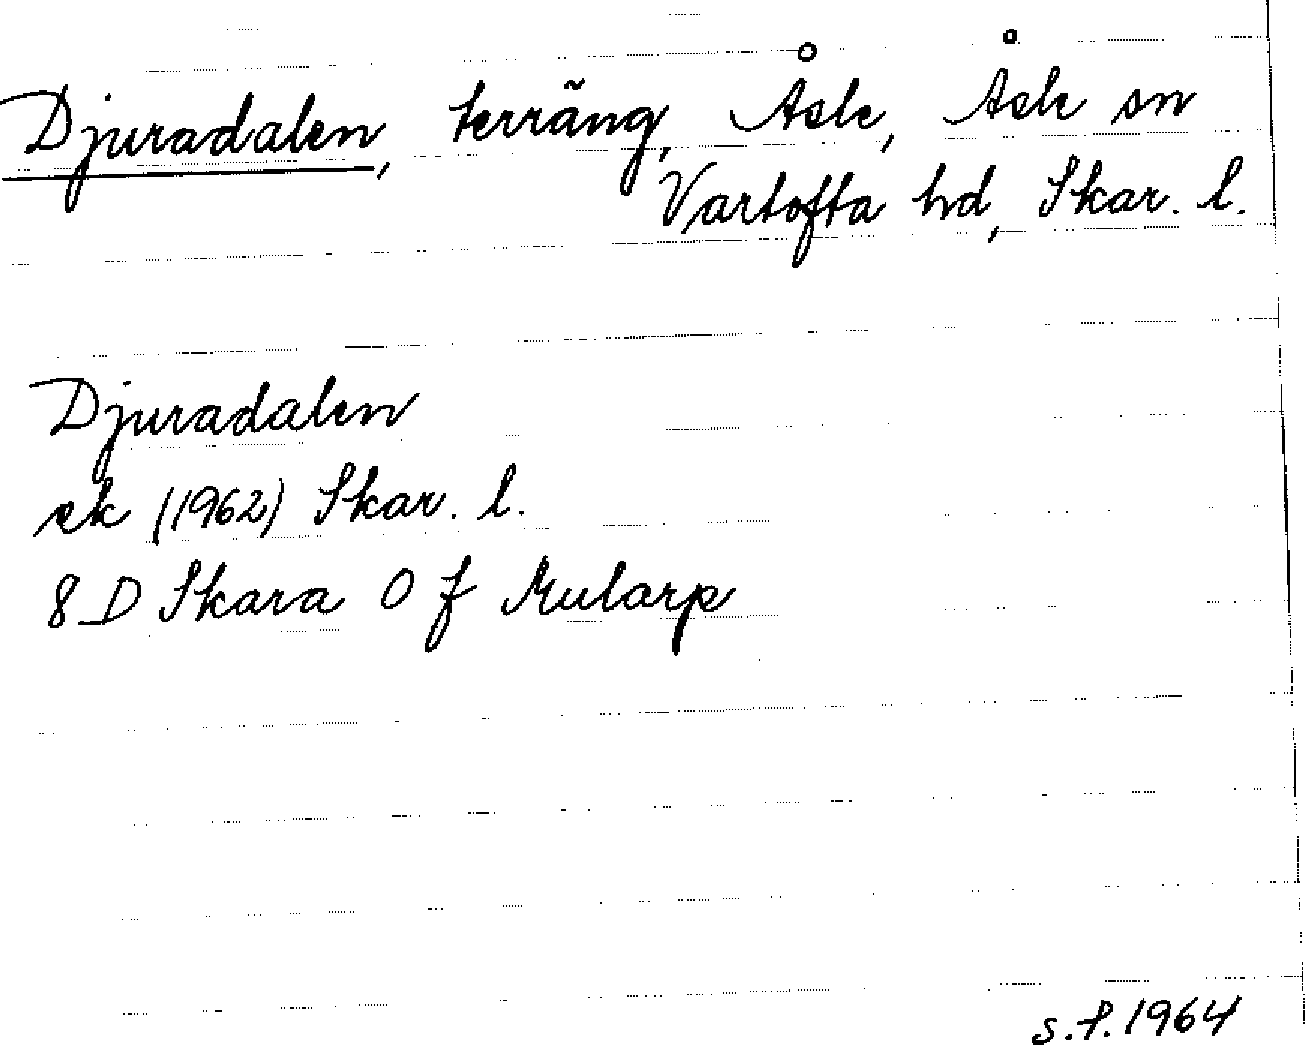 Djuradalen, terräng, Åsle, Åsle sn
Vartofta hd, Skar. l.
Djuradalen
ek (1962) Skar. l.
8 D Skara 0 f Mularp
s.f. 1964